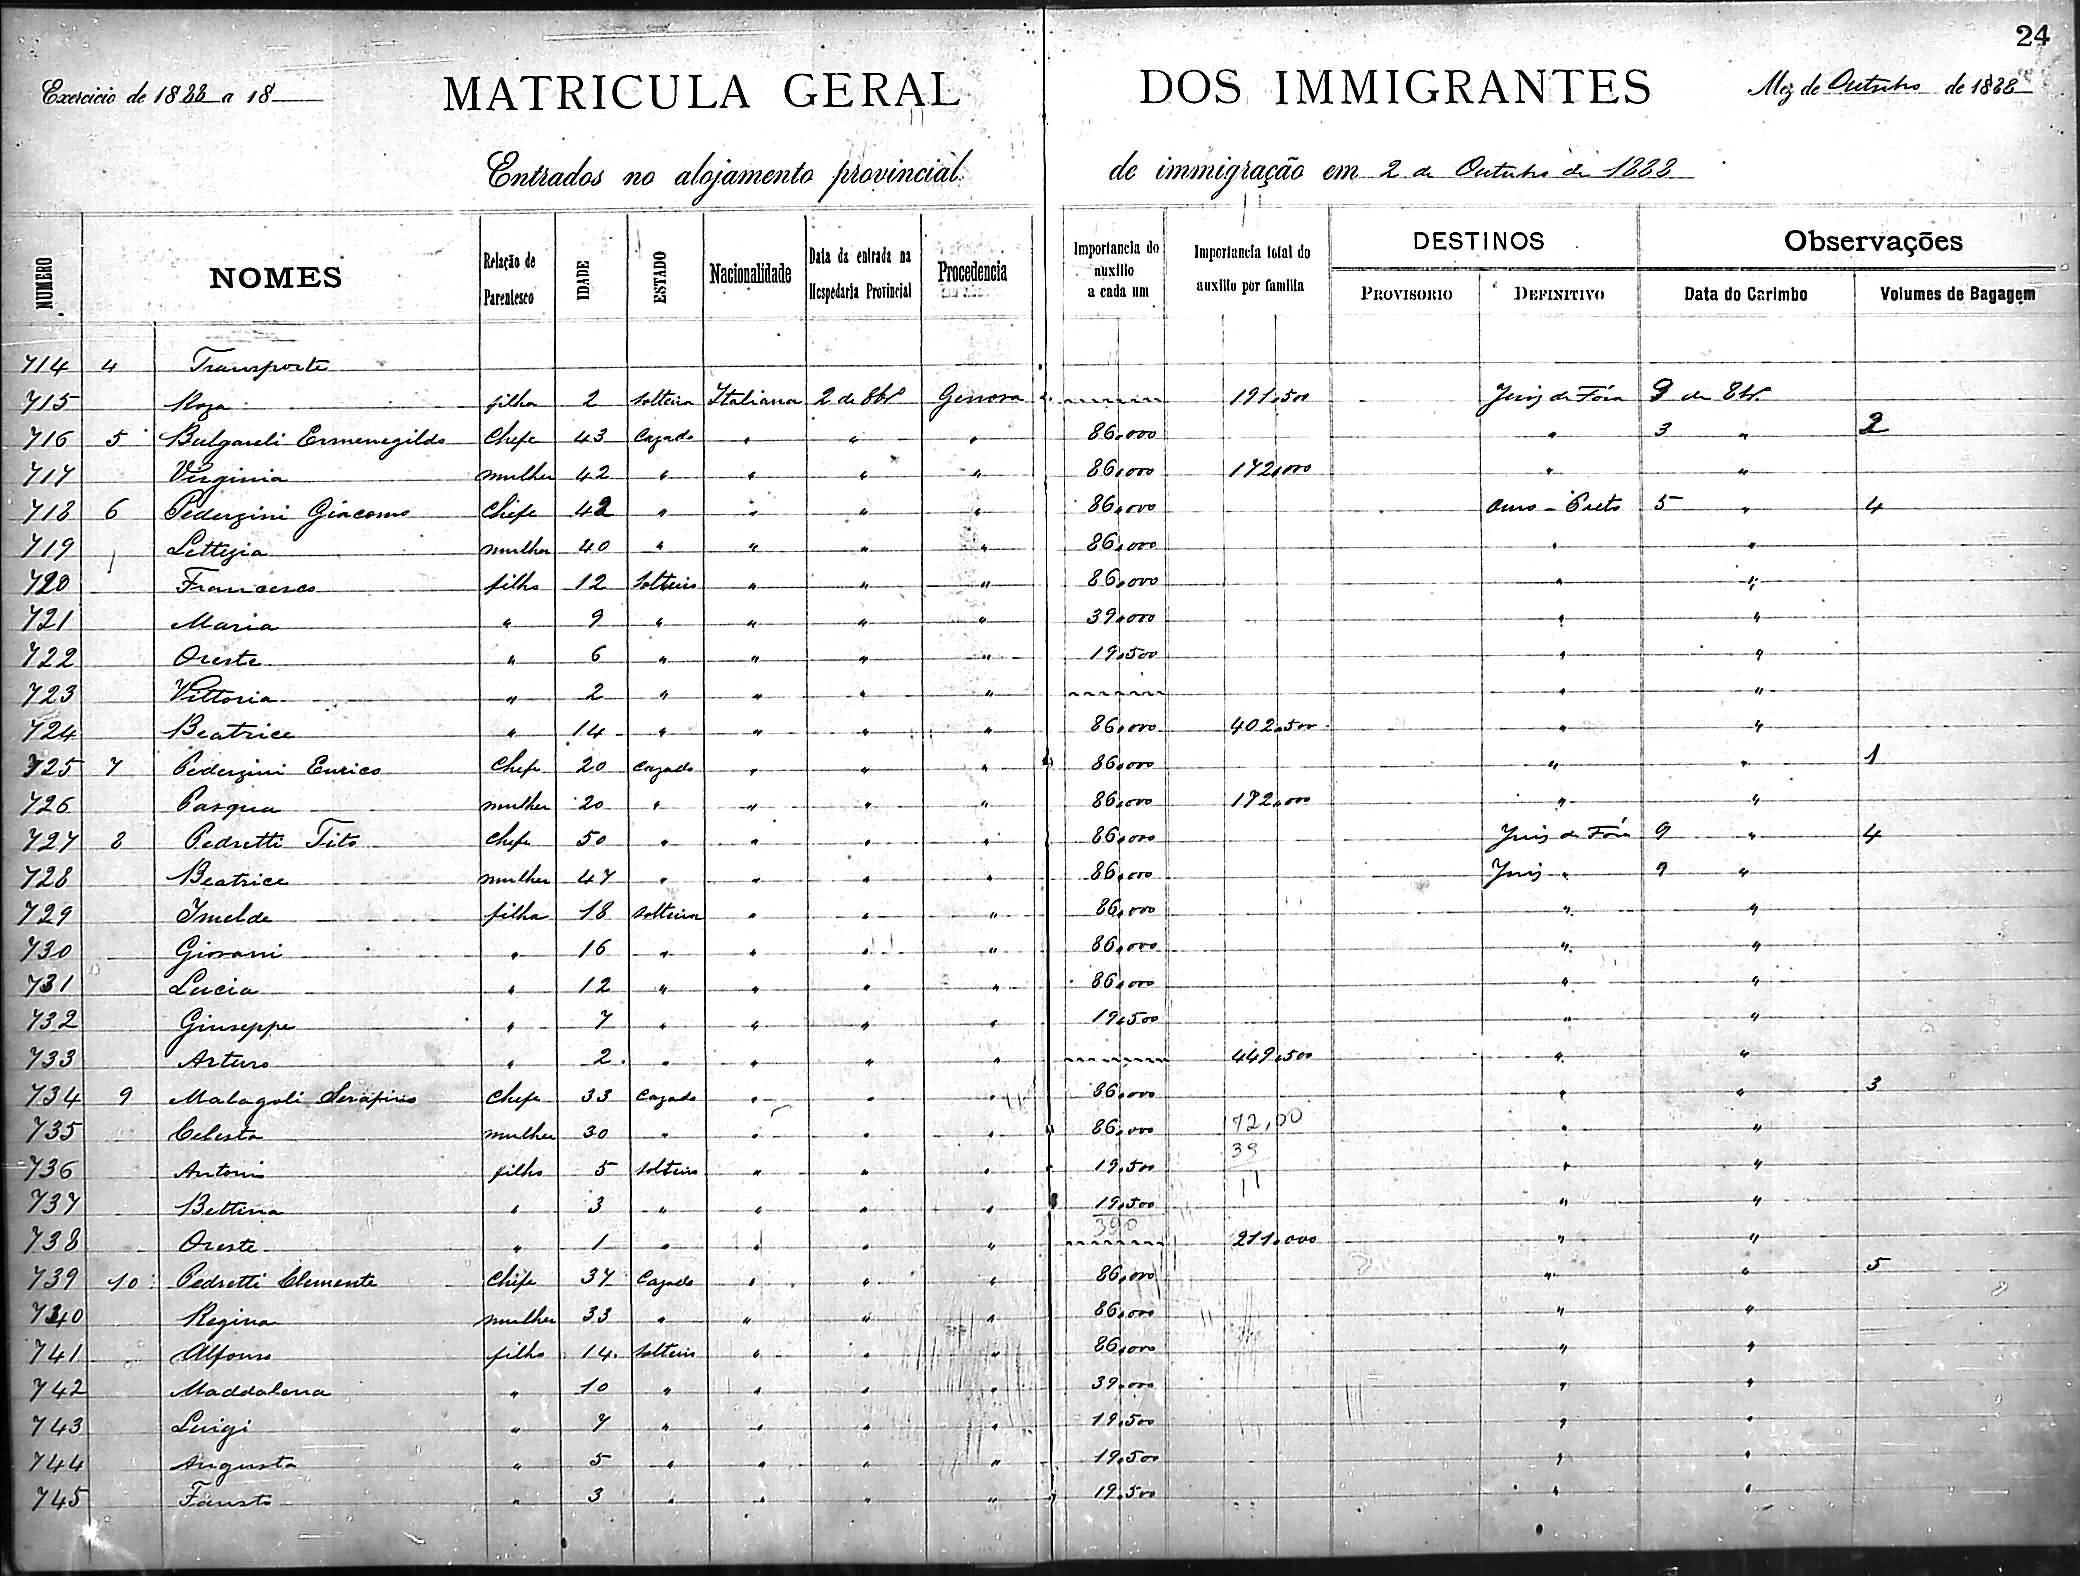 24
Exercicio de 1888 a 18
MATRICULA GERAL DOS IMMIGRANTES
Mez de Outubro de 1888
Entrados no alojamento provincial de immigração em 2 de Outubro de 1888
NUMERO NOMES Relação de Parentesco IDADE ESTADO Nacionalidade Data da entrada na Hospedaria Provincial Procedencia Importancia do auxilio a cada um Importancia total do auxilio por familia DESTINOS PROVISORIO DEFINITIVO Observações Data do Carimbo Volumes de Bagagem
714 4 Transporte
715 Roza filha 2 solteira Italiana 2 de 8br Genova 191,500 Juiz de Fóra 9 de 8br.
716 5 Bulgareli Ermenegildo Chefe 43 Cazado " " " 86,000 " 3 " 2
717 Virginia mulher 42 " " " " 86,000 172,000 " "
718 6 Pederzini Giacomo Chefe 42 " " " " 86,000 Ouro-Preto 5 " 4
719 Lettizia mulher 40 " " " " 86,000 " "
720 Francesco filho 12 Solteiro " " " 86,000 " "
721 Maria " 9 " " " " 39,000 " "
722 Oreste " 6 " " " " 19,500 " "
723 Vittoria " 2 " " " " " "
724 Beatrice " 14 " " " " 86,000 402,500 " "
725 7 Pederzini Enrico Chefe 20 Cazado " " " 86,000 " " 1
726 Pasqua mulher 20 " " " " 86,000 172,000 " "
727 8 Pedretti Tito Chefe 50 " " " " 86,000 Juiz de Fóra 9 " 4
728 Beatrice mulher 47 " " " " 86,000 Juiz " 9 "
729 Imelde filha 18 solteira " " " 86,000 " "
730 Giovani " 16 " " " " 86,000 " "
731 Lucia " 12 " " " " 86,000 " "
732 Giuseppe " 7 " " " " 19,500 " "
733 Arturo " 2 " " " " 449,500 " "
734 9 Malagoli Serafino Chefe 33 Cazado " " " 86,000 " " 3
735 Celesta mulher 30 " " " " 86,000 172,00 " "
736 Antonio filho 5 solteiro " " " 19,500 39 " "
737 Bettina " 3 " " " " 19,500 11 " "
738 Oreste " 1 " " " " 390 211,000 " "
739 10 Pedretti Clemente Chefe 37 Cazado " " " 86,000 " " 5
740 Regina mulher 33 " " " " 86,000 " "
741 Alfonso filho 14 Solteiro " " " 86,000 " "
742 Maddalena " 10 " " " " 39,000 " "
743 Luigi " 7 " " " " 19,500 " "
744 Augusta " 5 " " " " 19,500 " "
745 Fausto " 3 " " " " 19,500 " "